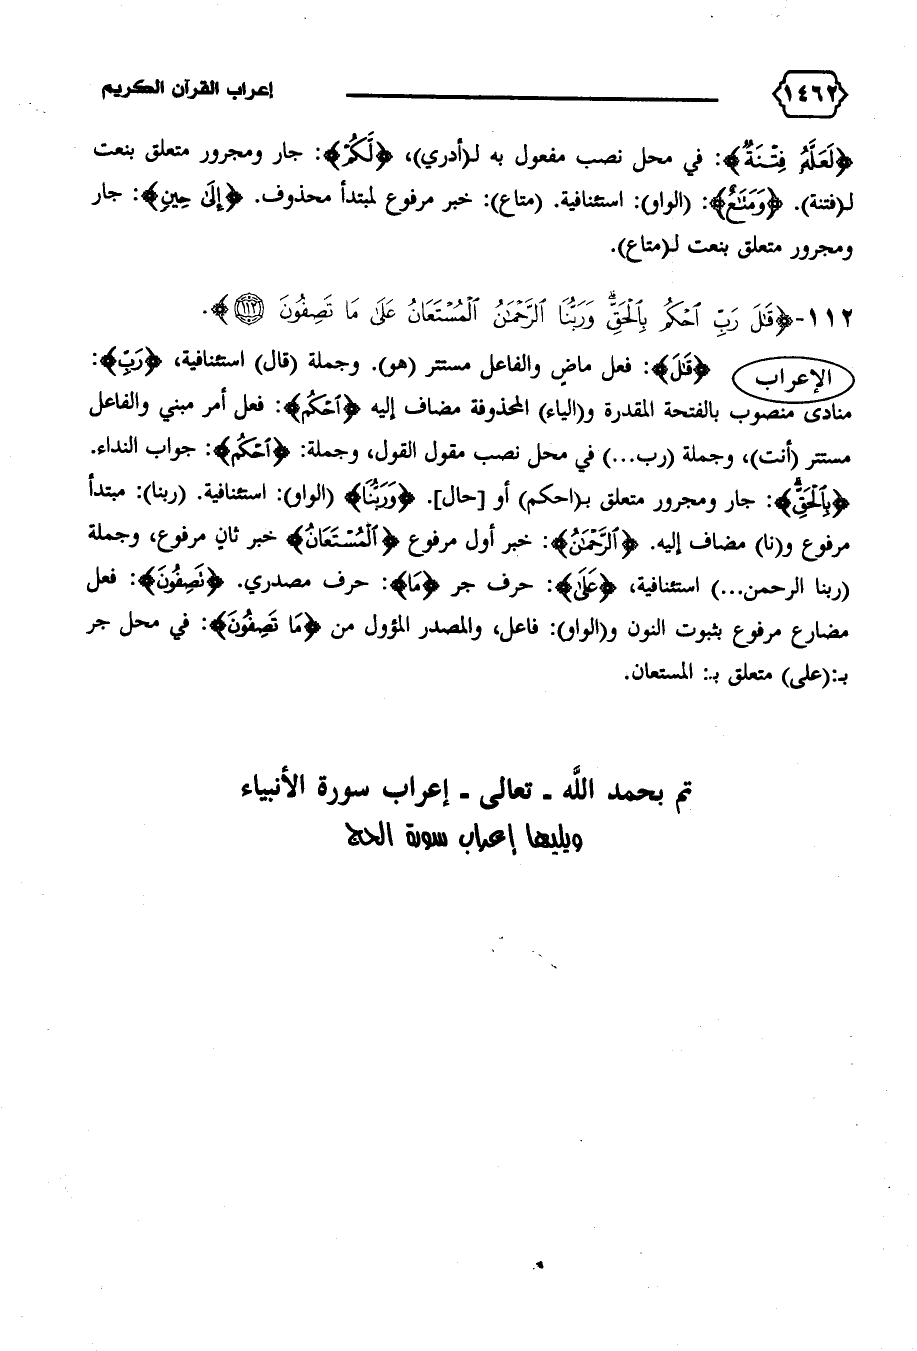 ١٤٦٢ إعراب القرآن الكريم
﴿لَعَلَّهُ فِتْنَةٌ﴾: في محل نصب مفعول به لـ(أدري)، ﴿لَّكُمْ﴾: جار ومجرور متعلق بنعت
لـ(فتنة). ﴿وَمَتَٰعٌ﴾: (الواو): استئنافية. (متاع): خبر مرفوع لمبتدأ محذوف. ﴿إِلَىٰ حِينٍ﴾: جار
ومجرور متعلق بنعت لـ(متاع).
١١٢-﴿قَٰلَ رَبِّ ٱحْكُم بِٱلْحَقِّ ۗ وَرَبُّنَا ٱلرَّحْمَٰنُ ٱلْمُسْتَعَانُ عَلَىٰ مَا تَصِفُونَ ١١٢﴾.
الإعراب ﴿قَٰلَ﴾: فعل ماضٍ والفاعل مستتر (هو). وجملة (قال) استئنافية، ﴿رَبِّ﴾:
منادى منصوب بالفتحة المقدرة و(الياء) المحذوفة مضاف إليه ﴿ٱحْكُم﴾: فعل أمر مبني والفاعل
مستتر (أنت)، وجملة (رب...) في محل نصب مقول القول، وجملة: ﴿ٱحْكُم﴾: جواب النداء.
﴿بِٱلْحَقِّ ۗ﴾: جار ومجرور متعلق بـ(احكم) أو [حال]. ﴿وَرَبُّنَا﴾ (الواو): استئنافية. (ربنا): مبتدأ
مرفوع و(نا) مضاف إليه. ﴿ٱلرَّحْمَٰنُ﴾: خبر أول مرفوع ﴿ٱلْمُسْتَعَانُ﴾ خبر ثانٍ مرفوع، وجملة
(ربنا الرحمن...) استئنافية، ﴿عَلَىٰ﴾: حرف جر ﴿مَا﴾: حرف مصدري. ﴿تَصِفُونَ﴾: فعل
مضارع مرفوع بثبوت النون و(الواو): فاعل، والمصدر المؤول من ﴿مَا تَصِفُونَ﴾: في محل جر
بـ:(على) متعلق بـ: المستعان.
تم بحمد اللَّه ـ تعالى ـ إعراب سورة الأنبياء
ويليها إعراب سورة الحج